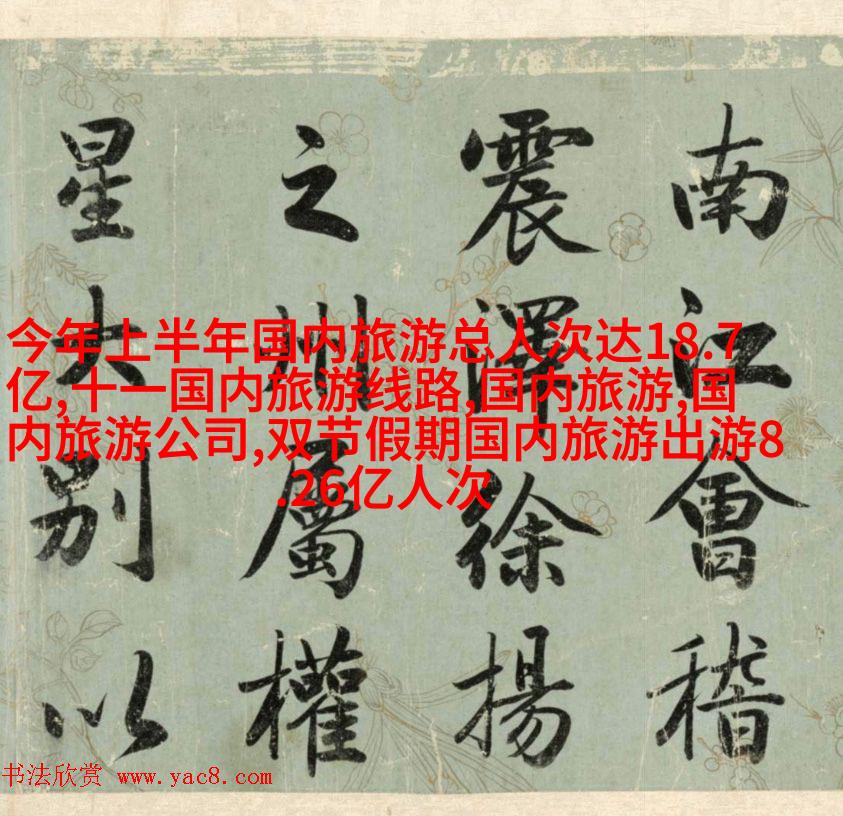 南江會稽
震澤徐揚
之州屬權
星大别以
今年上半年国内旅游总人次达18.7
亿,十一国内旅游线路,国内旅游,国
内旅游公司,双节假期国内旅游出游8
.26亿人次
书法欣赏 www.yac8.com